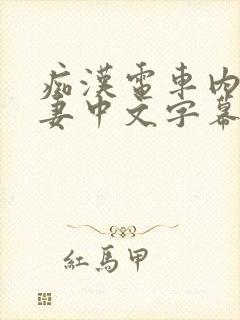 痴漢電車内
妻中文字幕
紅馬甲